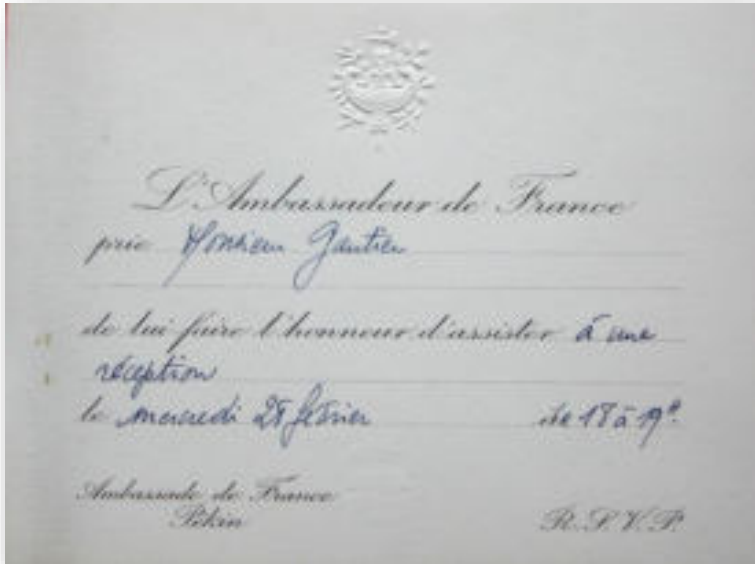 L'Ambassadeur de France
prie Monsieur Gautier
de lui faire l'honneur d'assister à une
réception
le mercredi 28 février de 18 à 19h.
Ambassade de France
Pékin R.S.V.P.